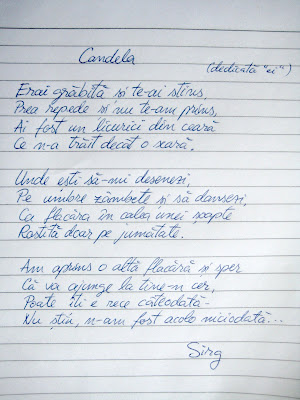 Candela
(dedicată "ei")
Erai grăbită și te-ai stins,
Prea repede și nu te-am prins,
Ai fost un licurici din ceară
Ce n-a trăit decât o seară.
Unde ești să-mi desenezi,
Pe umbre zâmbete și să dansezi,
Ca flacăra în calea unei șoapte
Rostită doar pe jumătate.
Am aprins o altă flacără și sper
Că va ajunge la tine-n cer,
Poate îți e rece câteodată..
Nu știu, n-am fost acolo niciodată...
Sirg